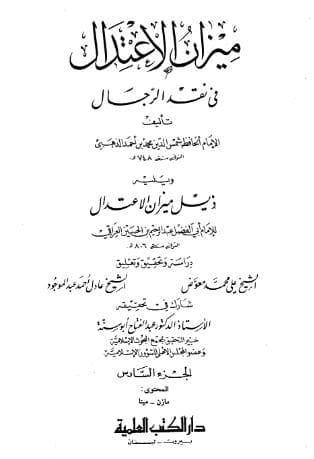 ميزان الاعتدال
في نقد الرجال
تأليف
الإمام الحافظ شمس الدين محمد بن أحمد الذهبي
المتوفى سنة ٧٤٨ هـ
ويليه
ذيل ميزان الاعتدال
للإمام أبي الفضل عبد الرحيم بن الحسين العراقي
المتوفى سنة ٨٠٦ هـ
دراسة وتحقيق وتعليق
الشيخ علي محمد معوض الشيخ عادل أحمد عبد الموجود
شارك في تحقيقه
الأستاذ الدكتور عبد الفتاح أبو سنة
خبير التحقيق بمجمع البحوث الإسلامية
وعضو المجلس الأعلى للشؤون الإسلامية
الجزء السادس
المحتوى:
مازن - مينا
دار الكتب العلمية
بيروت - لبنان